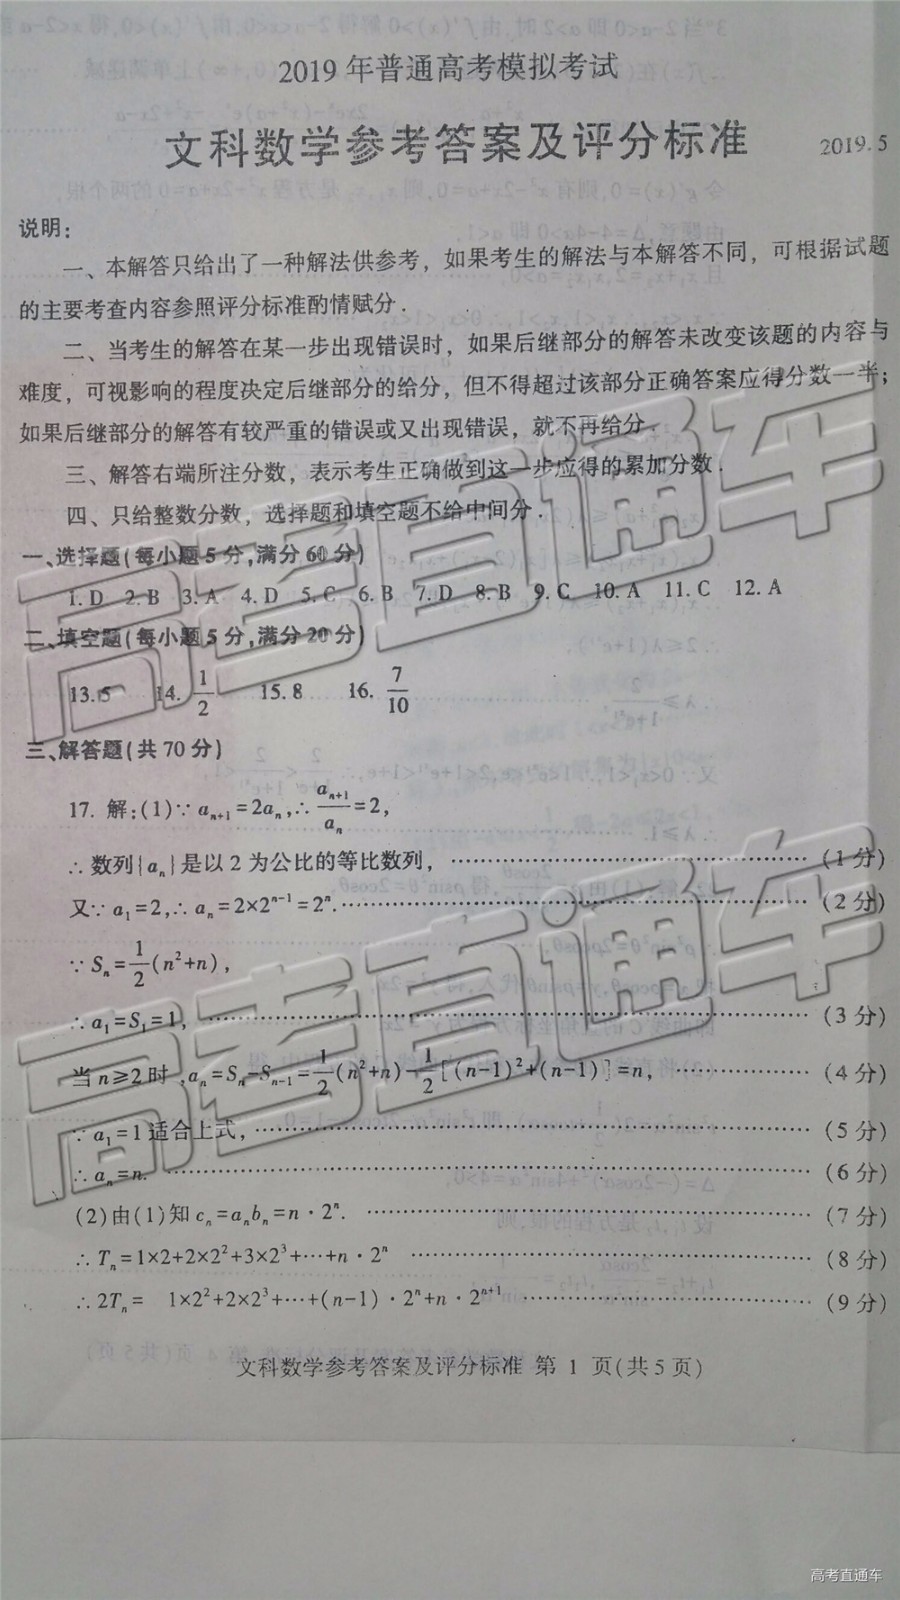 2019年普通高考模拟考试
文科数学参考答案及评分标准 2019.5
说明：
一、本解答只给出了一种解法供参考，如果考生的解法与本解答不同，可根据试题
的主要考查内容参照评分标准酌情赋分.
二、当考生的解答在某一步出现错误时，如果后继部分的解答未改变该题的内容与
难度，可视影响的程度决定后继部分的给分，但不得超过该部分正确答案应得分数一半；
如果后继部分的解答有较严重的错误或又出现错误，就不再给分.
三、解答右端所注分数，表示考生正确做到这一步应得的累加分数.
四、只给整数分数，选择题和填空题不给中间分.
一、选择题(每小题5分,满分60分)
1.D 2.B 3.A 4.D 5.C 6.B 7.D 8.B 9.C 10.A 11.C 12.A
二、填空题(每小题5分,满分20分)
13.5 14. 1/2 15.8 16. 7/10
三、解答题(共70分)
17. 解:(1)∵ aₙ₊₁=2aₙ,∴ aₙ₊₁/aₙ=2,
∴数列{aₙ}是以2为公比的等比数列, …… (1分)
又∵ a₁=2,∴ aₙ=2×2ⁿ⁻¹=2ⁿ. …… (2分)
∵ Sₙ=1/2(n²+n),
∴ a₁=S₁=1, …… (3分)
当n≥2时,aₙ=Sₙ-Sₙ₋₁=1/2(n²+n)-1/2[(n-1)²+(n-1)]=n, …… (4分)
∵ a₁=1适合上式, …… (5分)
∴ aₙ=n. …… (6分)
(2)由(1)知cₙ=aₙbₙ=n·2ⁿ. …… (7分)
∴ Tₙ=1×2+2×2²+3×2³+…+n·2ⁿ …… (8分)
∴ 2Tₙ= 1×2²+2×2³+…+(n-1)·2ⁿ+n·2ⁿ⁺¹ …… (9分)
文科数学参考答案及评分标准 第 1 页(共5页)
高考直通车
高考直通车
高考直通车